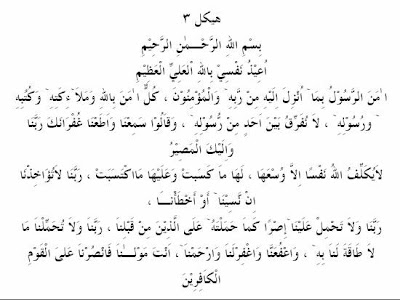 هيكل ٣
بِسْمِ اللهِ الرَّحْـــمٰنِ الرَّحِيْمِ
اُعِيْذُ نَفْسِيْ بِاللهِ الْعَلِيِّ الْعَظِيْمِ
اٰمَنَ الرَّسُوْلُ بِمَاۤ اُنْزِلَ اِلَيْهِ مِنْ رَبِّهٖ وَالْمُؤْمِنُوْنَ ، كُلٌّ اٰمَنَ بِاللهِ وَمَلَاۤءِكَتِهٖ وَكُتُبِهٖ
وَرُسُوْلِهٖ ، لَا نُفَرِّقُ بَيْنَ اَحَدٍ مِنْ رُّسُوْلِهٖ ، وَقَالُوْا سَمِعْنَا وَاَطَعْنَا غُفْرَانَكَ رَبَّنَا
وَاِلَيْكَ الْمَصِيْرُ
لَايُكَلِّفُ اللهُ نَفْسًا اِلاَّ وُسْعَهَا ، لَهَا مَا كَسَبَتْ وَعَلَيْهَا مَااكْتَسَبَتْ ، رَبَّنَا لَاتُؤَاخِذْنَا
اِنْ نَّسِيْنَاۤ اَوْ اَخْطَأْنَـــا ،
رَبَّنَا وَلَا تَحْمِلْ عَلَيْنَاۤ اِصْرًا كَمَا حَمَلْتَهٗ عَلَى الَّذِيْنَ مِنْ قَبْلِنَا ، رَبَّنَا وَلَا تُحَمِّلْنَا مَا
لَا طَاقَةَ لَنَا بِهٖ ، وَاعْفُعَنَّا وَاغْفِرْلَنَا وَارْحَمْنَا ، اَنْتَ مَوْلٰـــنَا فَانْصُرْنَا عَلَى الْقَوْمِ
الْكَافِرِيْنَ